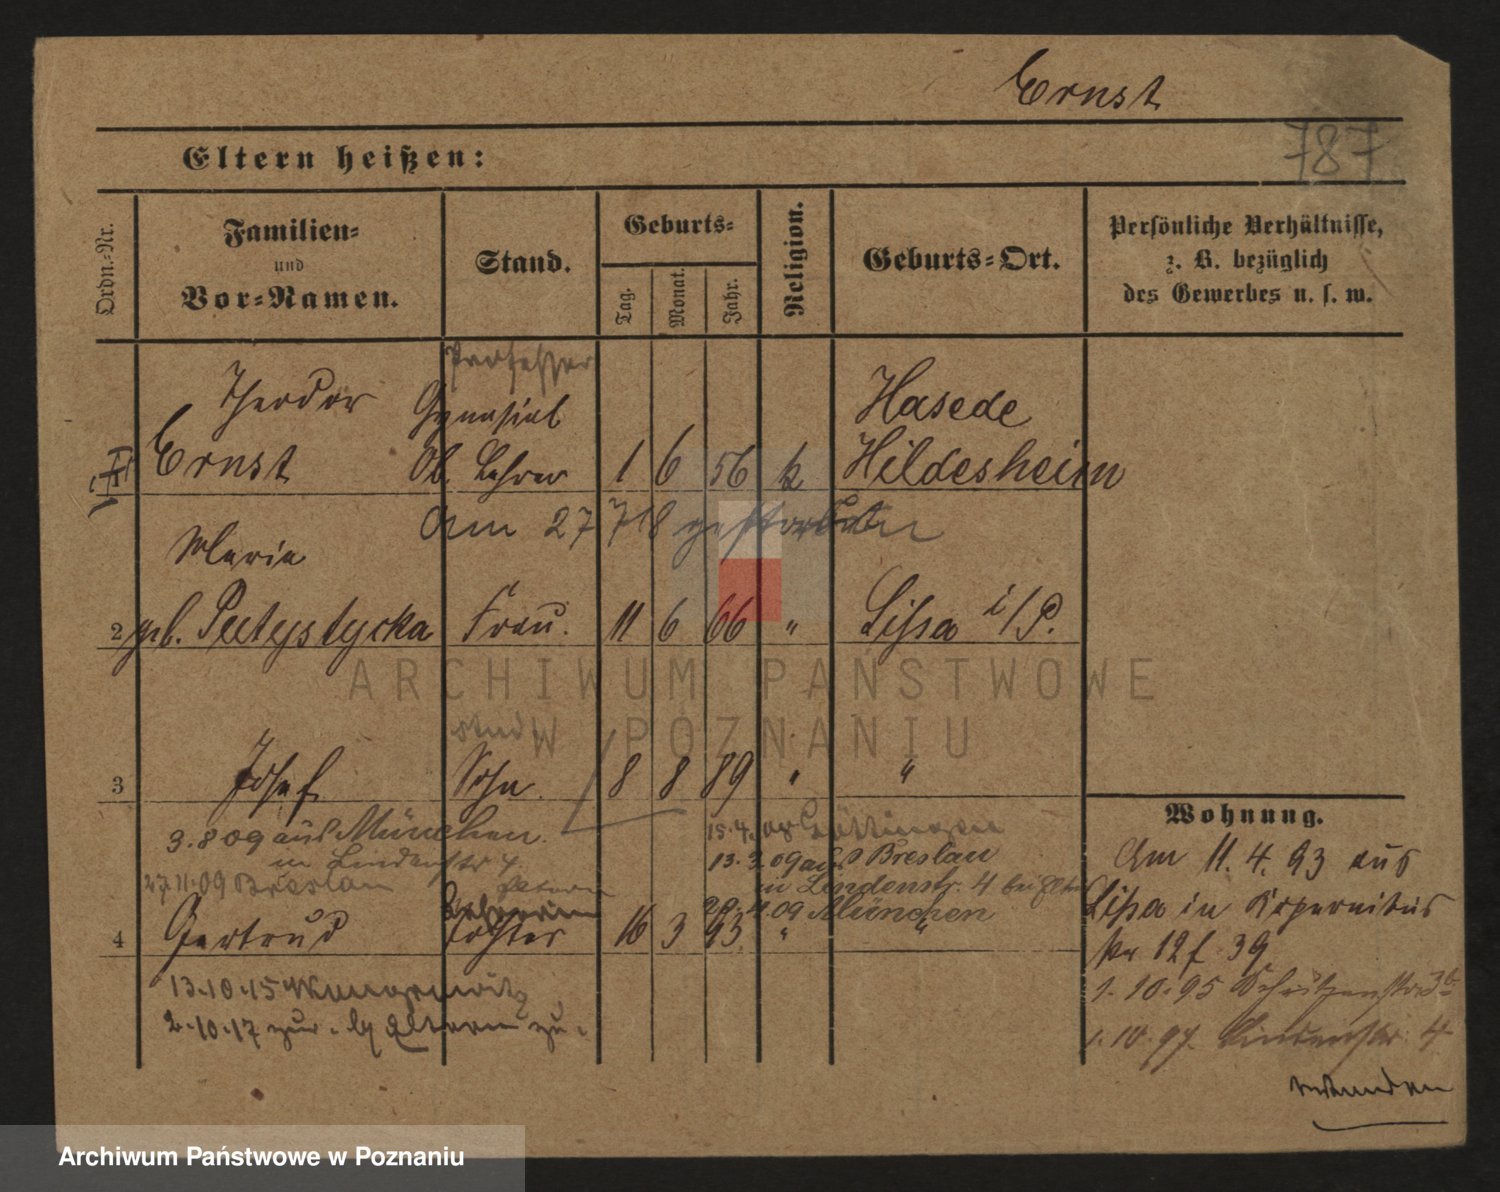 Ernst
787
Eltern heißen:
Ordn.-Nr.
Familien-
und
Vor-Namen.
Stand.
Geburts-
Tag.
Monat.
Jahr.
Religion.
Geburts-Ort.
Persönliche Verhältnisse,
z. B. bezüglich
des Gewerbes u. s. w.
Professor
Theodor Gymnasial Hasede
Ernst Ob. Lehrer 1 6 56 k Hildesheim
Am 27 7 18 gestorben
Maria
2 geb. Frau. 11 6 66 " Lissa i/P.
stud
3 Josef Sohn. 8 8 89 " "
3.8 09 aus München.
in Lindenstr 4.
27 11. 09 Breslau
15.4.08 Göttingen
13. 3. 09 aus Breslau
in Lindenstr. 4 bei Eltern
29. 09 München
Lehrerin
4 Gertrud Tochter 16 3 93 " "
13.10.15
2.10.17 zur. Eltern zu.
Wohnung.
Am 11. 4. 93 aus
Lissa in Kopernikus
Str 12 f 39
1. 10. 95 Schützenstr 3
1. 10. 97. Lindenstr. 4
ARCHIWUM PAŃSTWOWE
W POZNANIU
Archiwum Państwowe w Poznaniu